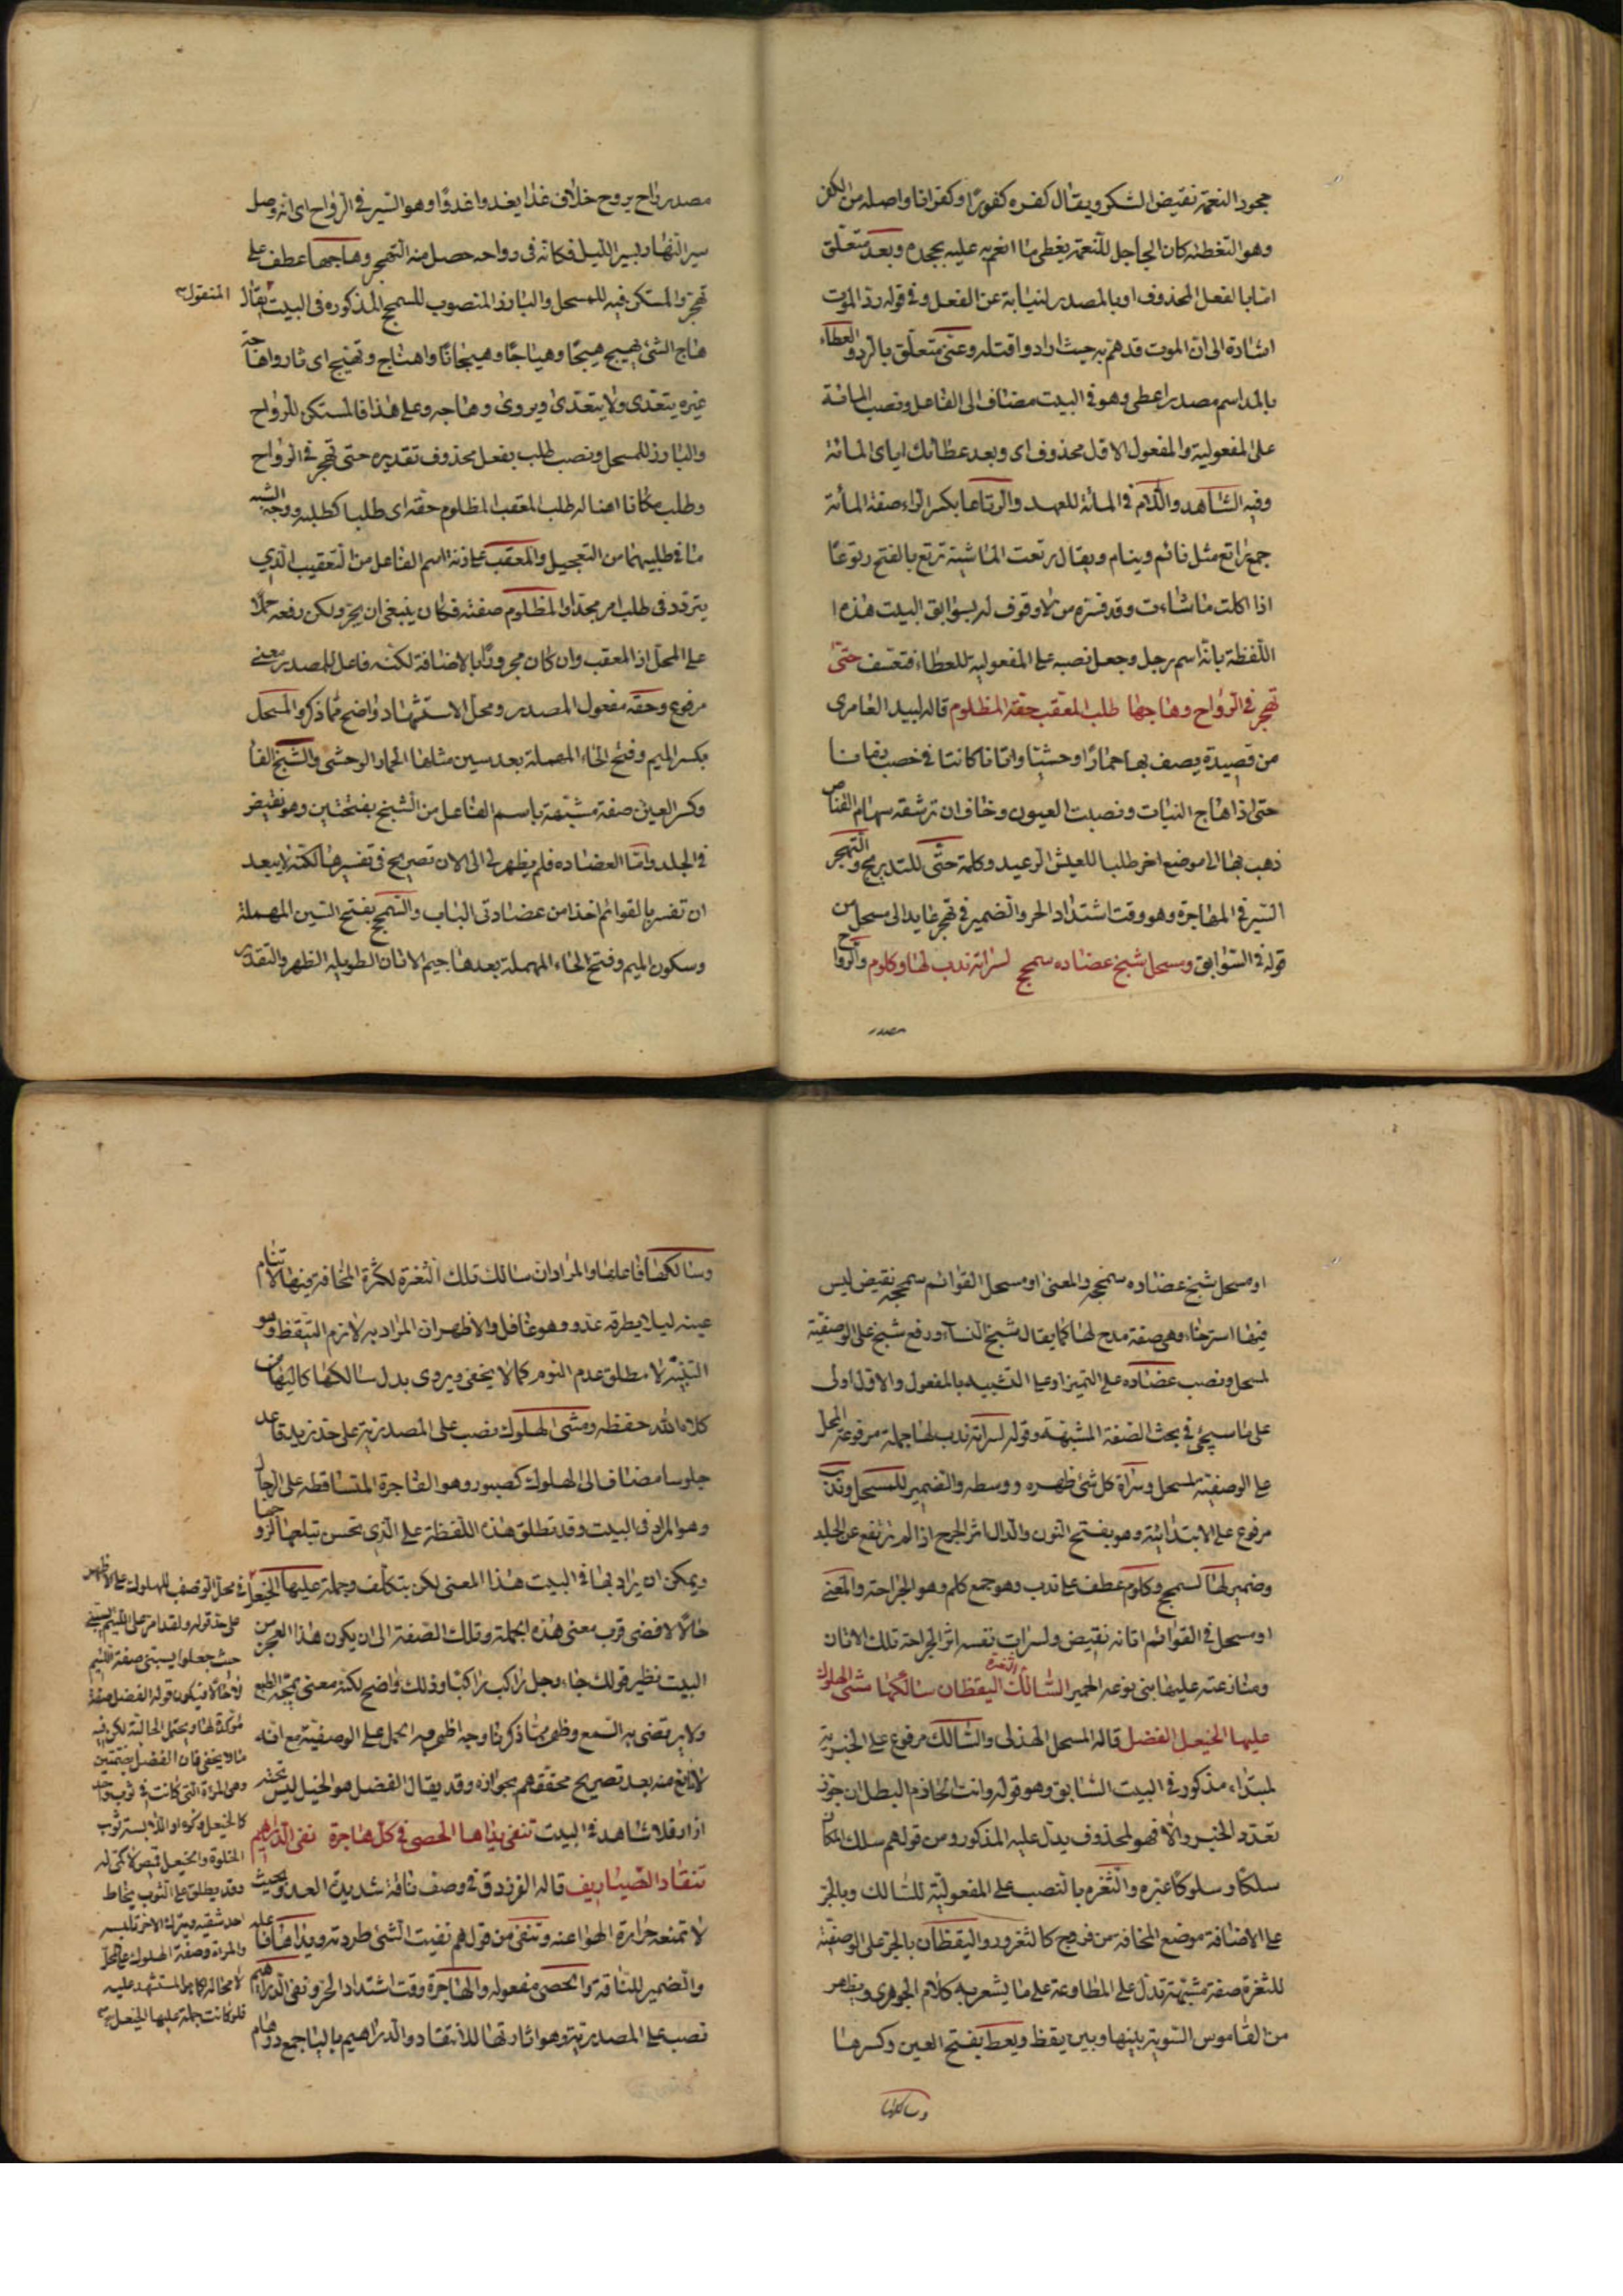 جحود النعمة نقيض الشكر ويقال كفره كفورا وكفرانا واصله من الكفر
وهو التغطية كان الجاحل للنعمة يغطى ما انعم به عليه بجحده وبعد متعلق
اما بالفعل المحذوف او بالمصدر لنيابة عن الفعل وفى قوله رد الموت
اشارة الى ان الموت قدهم به حيث ارادوا قتله وعنى متعلق بالرد والعطاء
بالمد اسم مصدر اعطى وهو فى البيت مضاف الى الفاعل ونصب المائة
على المفعولية والمفعول الاول محذوف اى وبعد عطائك اياى المائة
وفيه الشاهد واللام فى المائة للعهد والرتاعا بكسر الراء صفة المائة
جمع راتع مثل نائم ونيام ويقال رتعت الماشية ترتع بالفتح رتوعا
اذا اكلت ما شاءت وقد فسره من لا وقوف له بسوابق البيت هذه
اللفظة بانه اسم رجل وجعل نصبه على المفعولية للعطاء فتعسف حتى
تهجر فى الرواح وهاجها طلب المعقب حقه المظلوم قاله لبيد العامرى
من قصيدة يصف بها حمارا وحشيا واتانا كانتا فى خصب زمانا
حتى اذا هاج النبات ونصبت العيون وخاف ان ترشقه سهام القناص
ذهب بها الى موضع اخر طلبا للعيش الرغيد وكلمة حتى للتدريج والتهجر
السير فى الهاجرة وهو وقت اشتداد الحر والضمير فى تهجر عايد الى مسحل من
قوله فى السوابق ومسحل شنج عضاده سمحج لسراته ندب لها وكلوم والرواح
مصدر
مصدر راح يروح خلاف غدا يغدوا غدوا وهو السير فى الرواح اى انه وصل
سير النهار بسير الليل فكانه فى رواحه حصل منه التهجر وهاجها عطف على
تهجر والمستكن فيه للمسحل والبارز المنصوب للسمحج المذكوره فى البيت المنقول يقال
هاج الشئ يهيج هيجا وهياجا وهيجانا واهتاج وتهيج اى ثار وهاجه
غيره يتعدى ولا يتعدى ويروى وهاجه وعلى هذا فالمستكن للرواح
والبارز للمسحل ونصب طلب بفعل محذوف تقديره حتى تهجر فى الرواح
وطلب مكانا اهنا له طلب المعقب المظلوم حقه اى طلبا كطلبه ووجه الشبه
ما فى طلبيهما من التعجيل والمعقب على زنة اسم الفاعل من التعقيب الذى
يتردد فى طلب امر مجدا والمظلوم صفته فكان ينبغى ان يجر ولكن رفعه حملا
على المحل اذ المعقب وان كان مجرورا بالاضافة لكنه فاعل للمصدر معنى
مرفوع وحقه مفعول المصدر ومحل الاستشهاد واضح مما ذكر والمسحل
بكسر الميم وفتح الحاء المهملة بعد سين مثلها الحمار الوحشى والشنج الفا
وكسر العين صفة مشبهة باسم الفاعل من الشنج بفتحتين وهو تقيض
فى الجلد واما العضاده فلم يظهر لى الى الان تصريح فى تفسيرها لكنه لا يبعد
ان تفسر بالقوائم اخذا من عضادتى الباب والسمحج بفتح السين المهملة
وسكون الميم وفتح الحاء المهملة بعدها جيم الاتان الطويلة الظهر والتقدير
او مسحل شنج عضاده سمحجه والمعنى او مسحل القوائم سمحجه نقيض ليس
فيها استرخاء وهى صفة مدح لها كما يقال شنج النساء ورفع شنج على الوصفية
لمسحل ونصب عضاده على التميز او على التشبيه بالمفعول والاول اولى
على ما سيجئ فى بحث الصفة المشبهة وقوله لسراته ندب لها جملة مرفوعة المحل
على الوصفية لمسحل وسراة كل شئ ظهره ووسطه والضمير للمسحل وندب
مرفوع على الابتدائية وهو بفتح النون والدال اثر الجرح اذا لم يرتفع عن الجلد
وضمير لها لسمحج وكلوم عطف على ندب وهو جمع كلم وهو الجراحة والمعنى
او مسحل فى القوائم اقانه تقيض ولسرات نفسه اثر الجراحة تلك الاتان
ومنازعته عليها بنى نوعه الحمير السالك الثغرة اليقظان سالكها مشى الهلوك
عليها الخيعل الفضل قاله المسحل الهذلى والسالك مرفوع على الخبرية
لمبتداء مذكور فى البيت السابق وهو قوله وانت الحازم البطل ان جوز
تعدد الخبر والا فهو لمحذوف يدل عليه المذكور ومن قولهم سلك المكان
سلكا وسلوكا غيره والثغره بالنصب على المفعولية للسالك وبالجر
على الاضافة موضع المخافة من فروج كالثغرور واليقظان بالجر على الوصفية
للثغرة صفة مشبهة تدل على المطاوعة على ما يشعر به كلام الجوهرى ويظهر
من القاموس التسوية بينها وبين يقظ ويعط بفتح العين وكسرها
وسالكها
وسالكها فاعلها والمراد ان سالك تلك الثغرة لكثرة المخافة فيها لا تنام
عينه ليلا يطرقه عدو وهو غافل والاظهر ان المراد به لازم التيقظ وهو
التنبيه لا مطلق عدم النوم كما لا يخفى ويروى بدل سالكها كاليها من
كلاه الله حفظه ومشى الهلوك نصب على المصدرية على حد زيد قاعد
جلوسا مضاف الى الهلوك كصبور وهو الفاجرة المتساقطه على الرجال
وهو المراد فى البيت وقد تطلق هذه اللفظة على الذى تحسن تبلعها لزوجها
ويمكن ان يراد بها فى البيت هذا المعنى لكن بتكلف وجملة عليها الخيعل
حالا لافضى قرب معنى هذه الجملة وتلك الصفة الى ان يكون هذا العجز من
البيت نظير قولك جاء رجل راكب راكبا وذلك واضح لكنه معنى يمجه الطبع
ولا يرتضى به السمع وظهر مما ذكرنا وجه اظهريه الحمل على الوصفية مع انه
لا مانع منه بعد تصريح محققهم بجوازه وقد يقال الفضل هو الخيل ليس تحته
ازار فلا شاهد فى البيت تنفى يداها الحصى فى كل هاجرة نفى الدراهيم
تنقاد الصياريف قاله الفرزدق فى وصف ناقة شديدة العدو بحيث
لا تمنعه حرارة الهواء عنه وتنفى من قولهم نفيت الشئ طردته ويداها فاعله
والضمير للناقة والحصى مفعوله والهاجرة وقت اشتداد الحر ونفى الدراهيم
نصب على المصدرية وهو اثارتها للانتقاد والدراهيم بالياء جمع درهام
فى محل الوصف للهلوك على الاظهر
على حد قوله ولقد امر على اللئيم يسبنى
حيث جعلوا يسبنى صفة اللئيم
لا حالا فيكون قوله الفضل صفة
مؤكدة لها ويحتمل الحالية لكن فيه
ما لا يخفى فان الفضل بضمتين
وهى المراة التى كانت فى ثوب واحد
الخلوة والخيعل قميص لا كمى له
وقد يطلق على الثوب يخاط
احد شقيه ويترك الاخر تلبسه
والمراة وصفة الهلوك على المحل
لا محالة كما هو المستشهد عليه
فلو كانت جملة عليها الخيعل